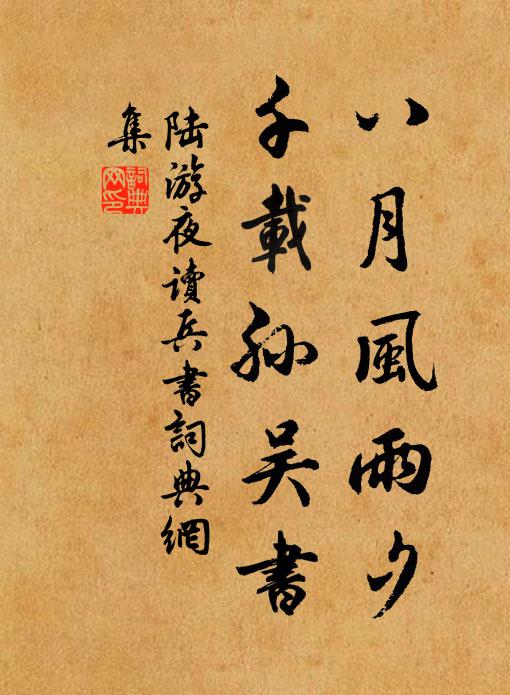 八月風雨夕
千載孫吴書
陸游夜讀兵書詞典網
集
詞典
网印